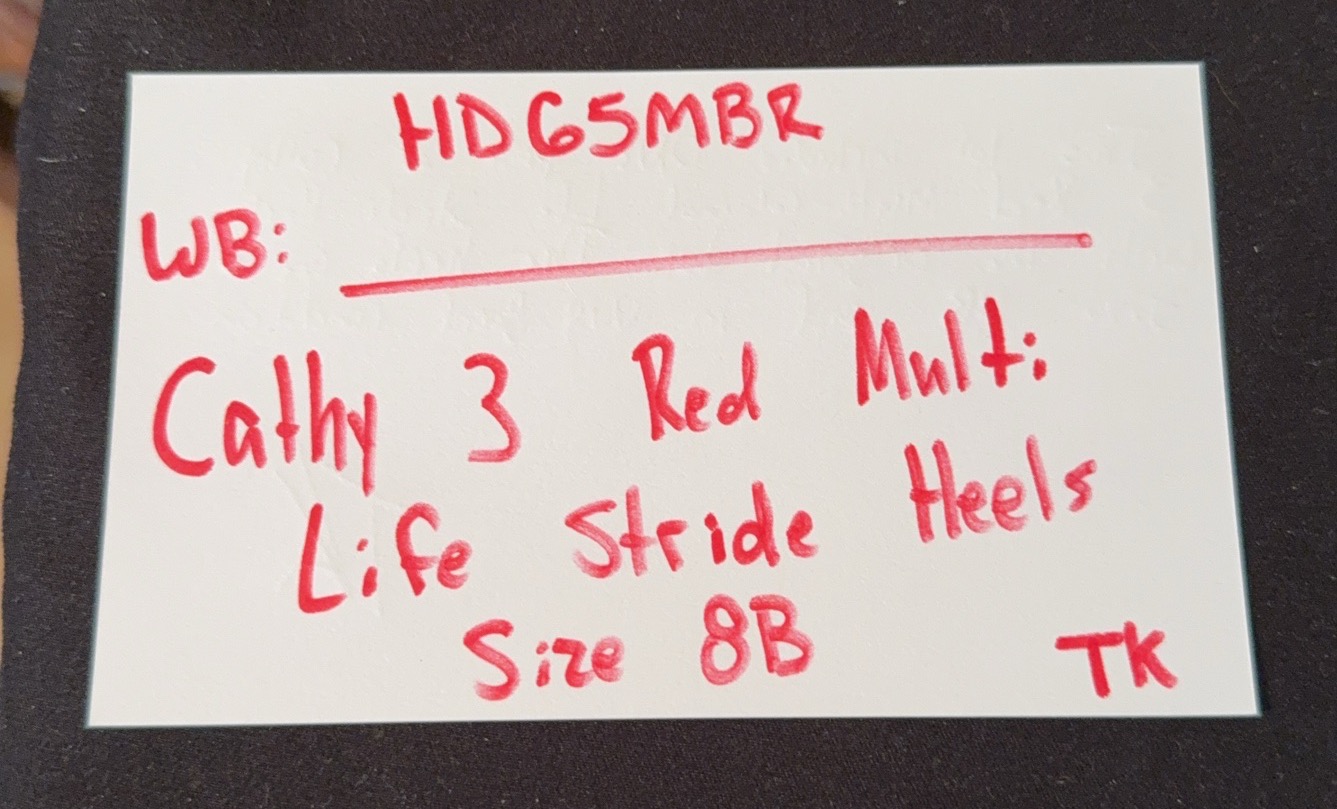 HD65MBR
WB: 
Cathy 3 Red Multi
Life Stride Heels
Size 8B
TK